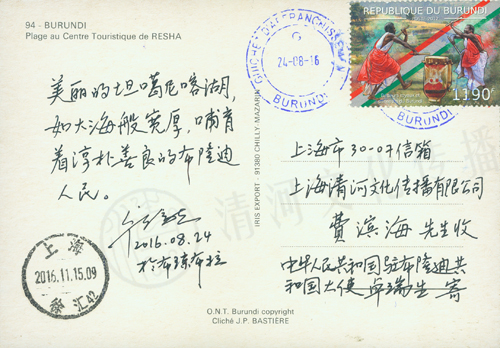 94 - BURUNDI
Plage au Centre Touristique de RESHA
GUICHET D'AFFRANCHISSEMENT
G
24-08-16
BURUNDI
REPUBLIQUE DU BURUNDI
1190F
美丽的坦噶尼喀湖,
如大海般宽厚,哺育
着淳朴善良的布隆迪
人民。
2016.08.24
于布琼布拉
上海
2016.11.15.09
汇42
IRIS EXPORT - 91380 CHILLY-MAZARIN
上海市30-07信箱
上海清河文化传播有限公司
费滨海 先生收
中华人民共和国驻布隆迪共
和国大使 卓瑞生 寄
O.N.T. Burundi copyright
Cliché J.P. BASTIERE
清河文化传播